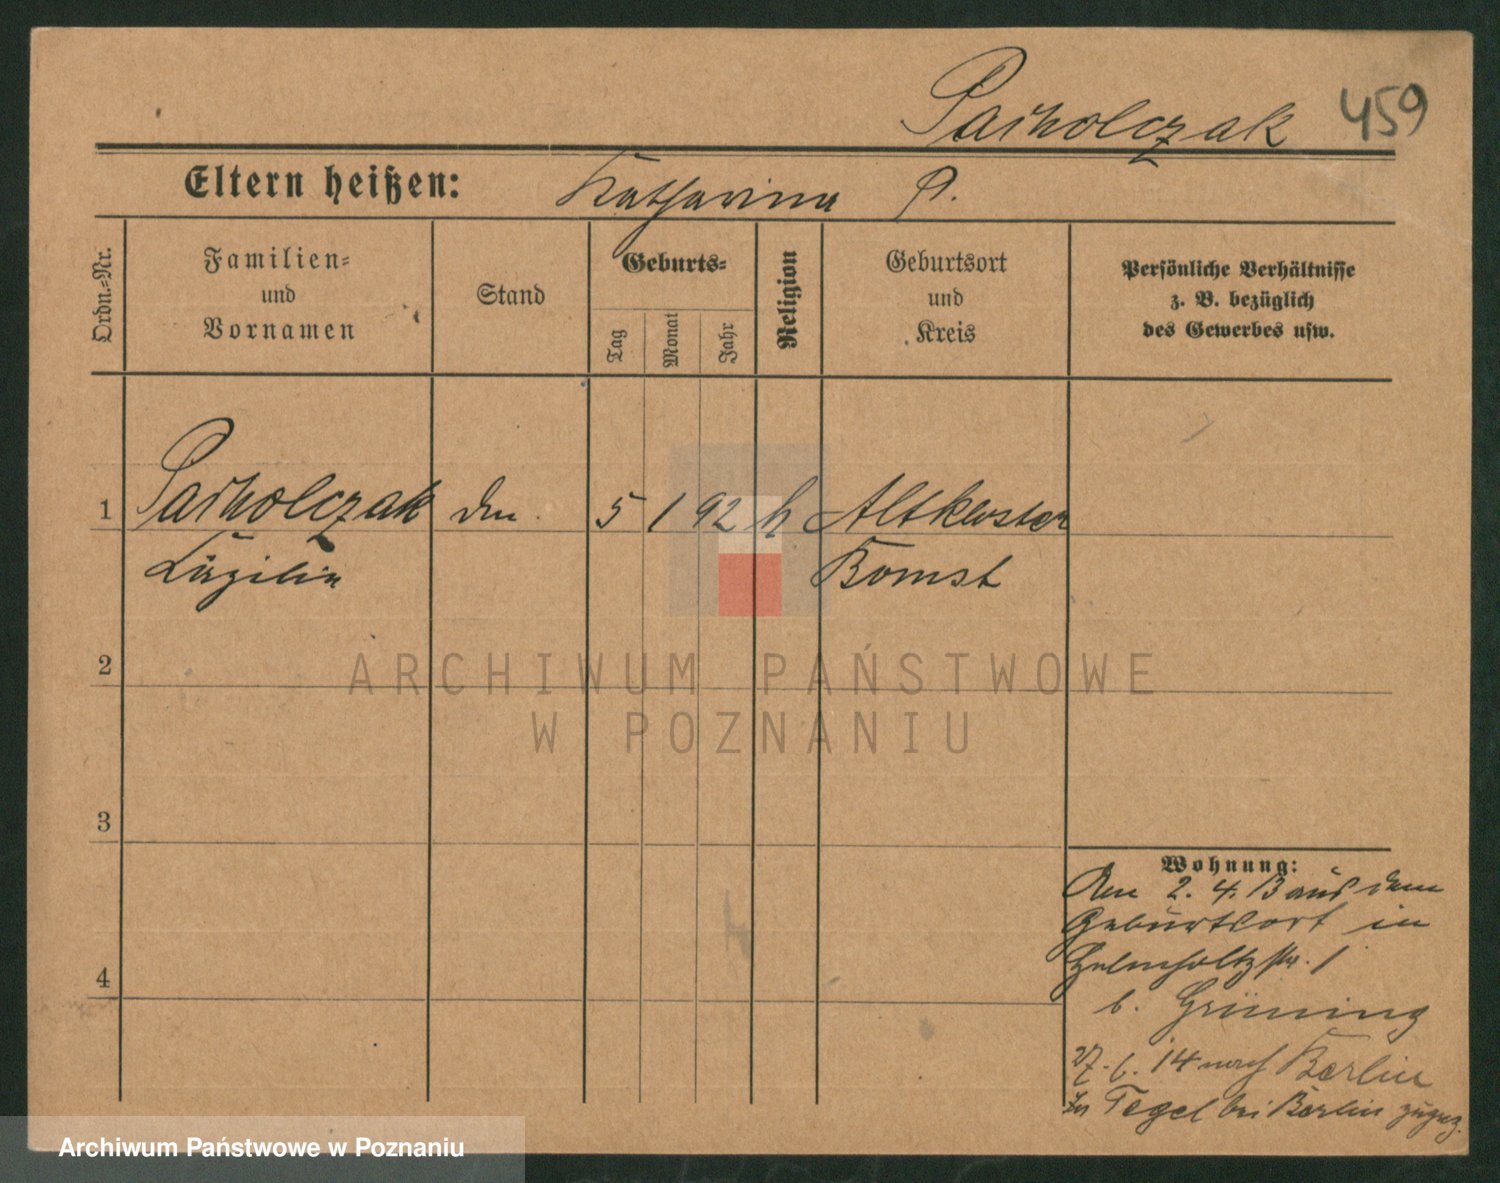 Pacholczak 459
Eltern heißen: Katharina P.
Ordn.-Nr.
Familien-
und
Vornamen
Stand
Geburts-
Tag
Monat
Jahr
Religion
Geburtsort
und
Kreis
Persönliche Verhältnisse
z. B. bezüglich
des Gewerbes usw.
1 Pacholczak 5 1 92 k Altkloster
Cäzilia Bomst
2
3
4
Wohnung:
Am 2. 4. 13 aus dem
Geburtsort in
Helmholtzstr. 1
b. Grüning
27. 6. 14 nach Berlin
In Tegel bei Berlin zugez.
ARCHIWUM PAŃSTWOWE
W POZNANIU
Archiwum Państwowe w Poznaniu